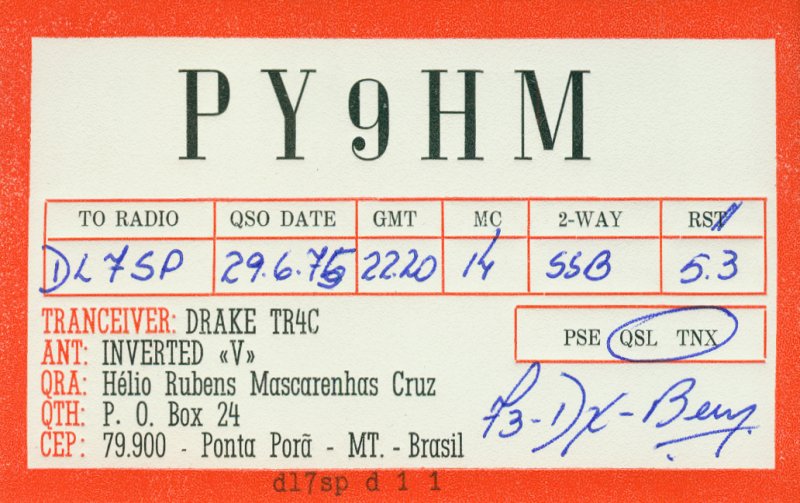 PY9HM
TO RADIO QSO DATE GMT MC 2-WAY RST
DL7SP 29.6.75 2220 14 SSB 5.3
TRANCEIVER: DRAKE TR4C
PSE QSL TNX
ANT: INVERTED «V»
QRA: Hélio Rubens Mascarenhas Cruz
QTH: P. O. Box 24
73-DX-
CEP: 79.900 - Ponta Porã - MT. - Brasil
dl7sp d 1 1